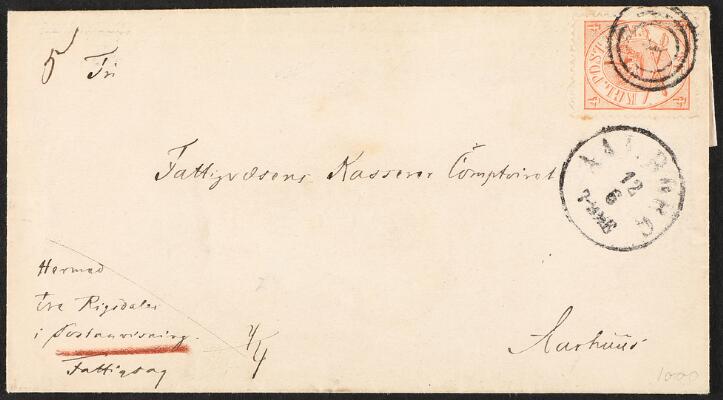 5 Fri
KGL. POST
Fattigvæsens Kasserer Comptoiret
AALBORG
12
6
Hermed
tre Rigsdaler
i Postanvisning.
Fattigsag
4/4
Aarhuus
1000